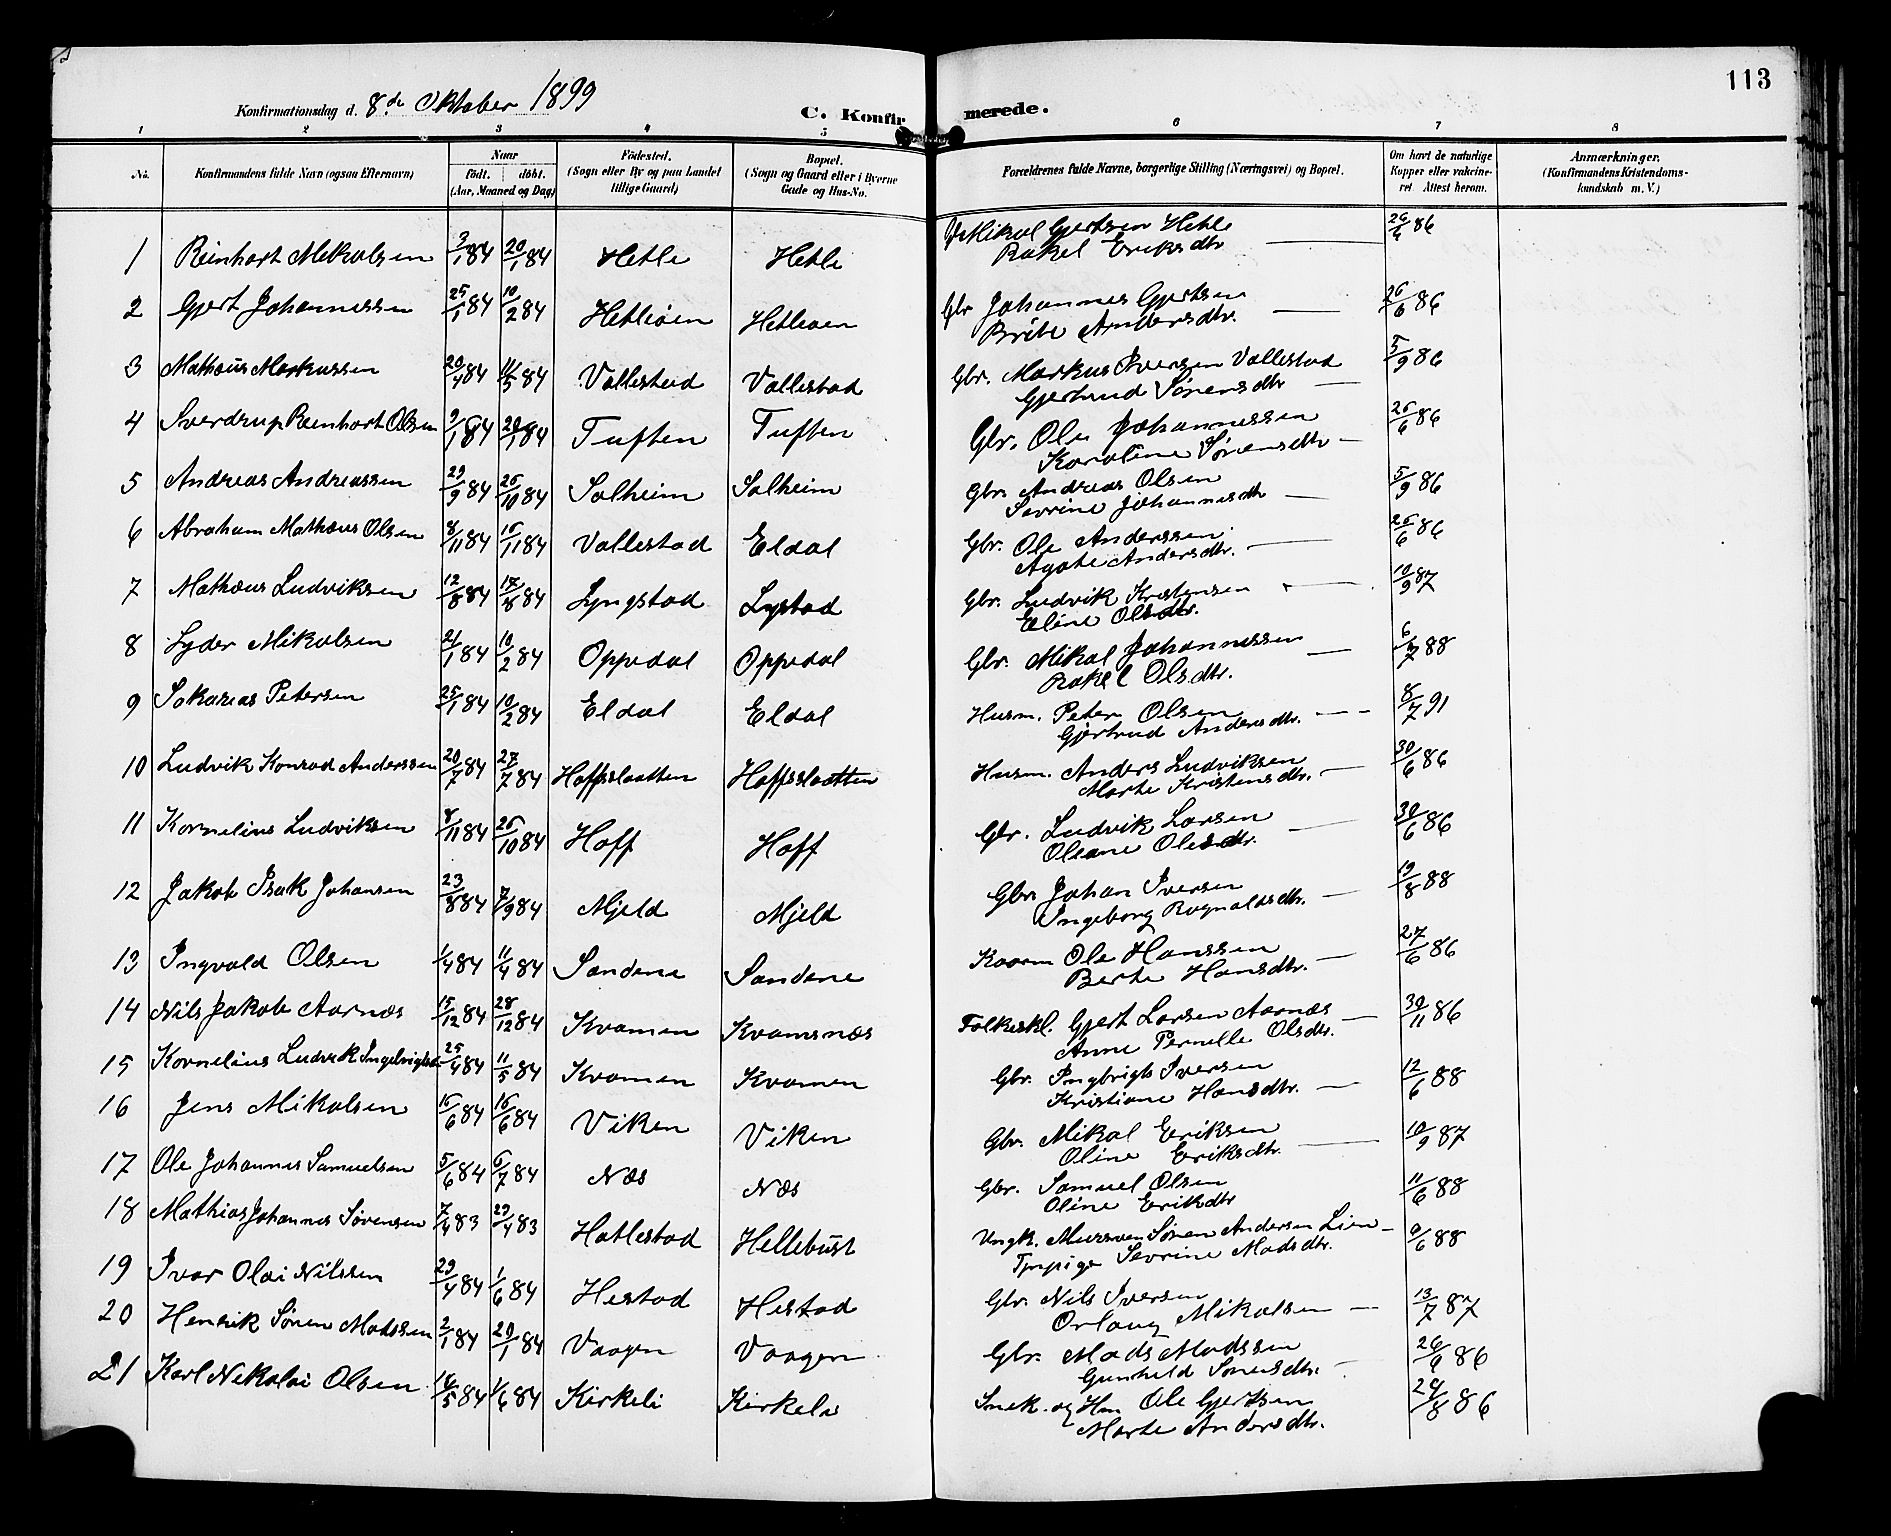 113
Konfirmationsdag d. 8de Oktober 1899
C. Konfirmerede.
1 2 3 4 5 6 7 8
No. Konfirmandens fulde Navn (ogsaa Efternavn) Naar Født. døbt. (Aar, Maaned og Dag) Fødested. (Sogn eller By og paa Landet tillige Gaard) Bopæl. (Sogn og Gaard eller i Byerne Gade og Hus-No. Forældrenes fulde Navne, borgerlige Stilling (Næringsvei) og Bopæl. Om havt de naturlige Kopper eller vakcineret Attest herom. Anmærkninger. (Konfirmandens Kristendomskundskab m. V.)
1 Reinhart Mikalsen 3/1 84 20/1 84 Hetle Hetle Mikal Gjertsen Hetle
Rakel Eriksdtr 86
2 Gjert Johannessen 25/1 84 10/2 84 Hetleøen Hetleøen Gbr Johannes Gjertsen
Brite Andersdtr. 26/6 86
3 Mathæus Markussen 20/4 84 11/5 84 Vallestad Vallestad Gbr. Markus Iversen Vallestad
Gjertrud Sørensdtr 5/9 86
4 Sverdrup Reinhart Olsen 2/1 84 20/1 84 Tuften Tuften Gbr. Ole Johannessen
Karoline Sørensdtr 26/6 86
5 Andreas Andreassen 29/9 84 26/10 84 Solheim Solheim Gbr. Andreas Olsen
Sevrine Johannesdtr 5/9 86
6 Abraham Mathæus Olsen 8/11 84 16/11 84 Vallestad Eldal Gbr. Ole Anderssen
Agate Andersdtr. 26/6 86
7 Mathæus Ludviksen 12/8 84 17/8 84 Lyngstad Lystad Gbr. Ludvik Kristensen
Eline Olsdtr. 10/9 87
8 Lyder Mikalsen 21/1 84 10/2 84 Oppedal Oppedal Gbr. Mikal Johannessen
Rakel Olsdtr. 6/7 88
9 Sakarias Petersen 25/1 84 10/2 84 Eldal Eldal Husm. Peter Olsen
Gjertrud Andersdtr. 8/7 91
10 Ludvik Konrad Anderssen 20/7 84 27/7 84 Hoffsslaatten Hoffsslaatten Husm. Anders Ludviksen
Marte Kristensdtr. 30/6 86
11 Kornelius Ludviksen 8/11 84 26/10 84 Hoff Hoff Gbr. Ludvik Larsen
Oleane Olesdtr. 30/6 86
12 Jakob Isak Johansen 23/8 84 7/9 84 Mjeld Mjeld Gbr Johan Iversen
Ingeborg Rognaldsdtr. 19/8 88
13 Ingvald Olsen 1/4 84 11/4 84 Sandene Sandene Kaarm Ole Hanssen
Berte Hansdtr. 27/6 86
14 Nils Jakob Aarnæs 15/12 84 28/12 84 Kvamen Kvamsnæs Folkeskl. Gjert Larsen Aarnæs
Anne Pernille Olsdtr. 30/11 86
15 Kornelius Ludvik 25/4 84 11/5 84 Kvamen Kvamen Gbr. Ingbrigt Iversen
Kristiane Hansdtr. 12/6 88
16 Jens Mikalsen 15/6 84 15/6 84 Viken Viken Gbr. Mikal Eriksen
Oline Eriksdtr. 10/9 87
17 Ole Johannes Samuelsen 5/6 84 6/7 84 Næs Næs Gbr. Samuel Olsen
Oline Erikdtr 11/6 88
18 Mathias Johannes Sørensen 7/4 83 29/4 83 Hatlestad Hellebust Ungk. Søren Andersen Lien
Sevrine Madsdtr. 9/6 88
19 Ivar Olai Nilssen 29/4 84 1/6 84 Hestad Hestad Gbr. Nils Iversen
Orlaug Mikalsen 13/7 87
20 Henrik Søren Madssen 2/1 84 20/1 84 Vaagen Vaagen Gbr. Mads Madssen
Gunhild Sørensdtr. 86
21 Karl Nikolai Olsen 18/5 84 1/6 84 Kirkeli Kirkeli Snek. og Hm Ole Gjertsen
Marte Andersdtr. 24/8 86